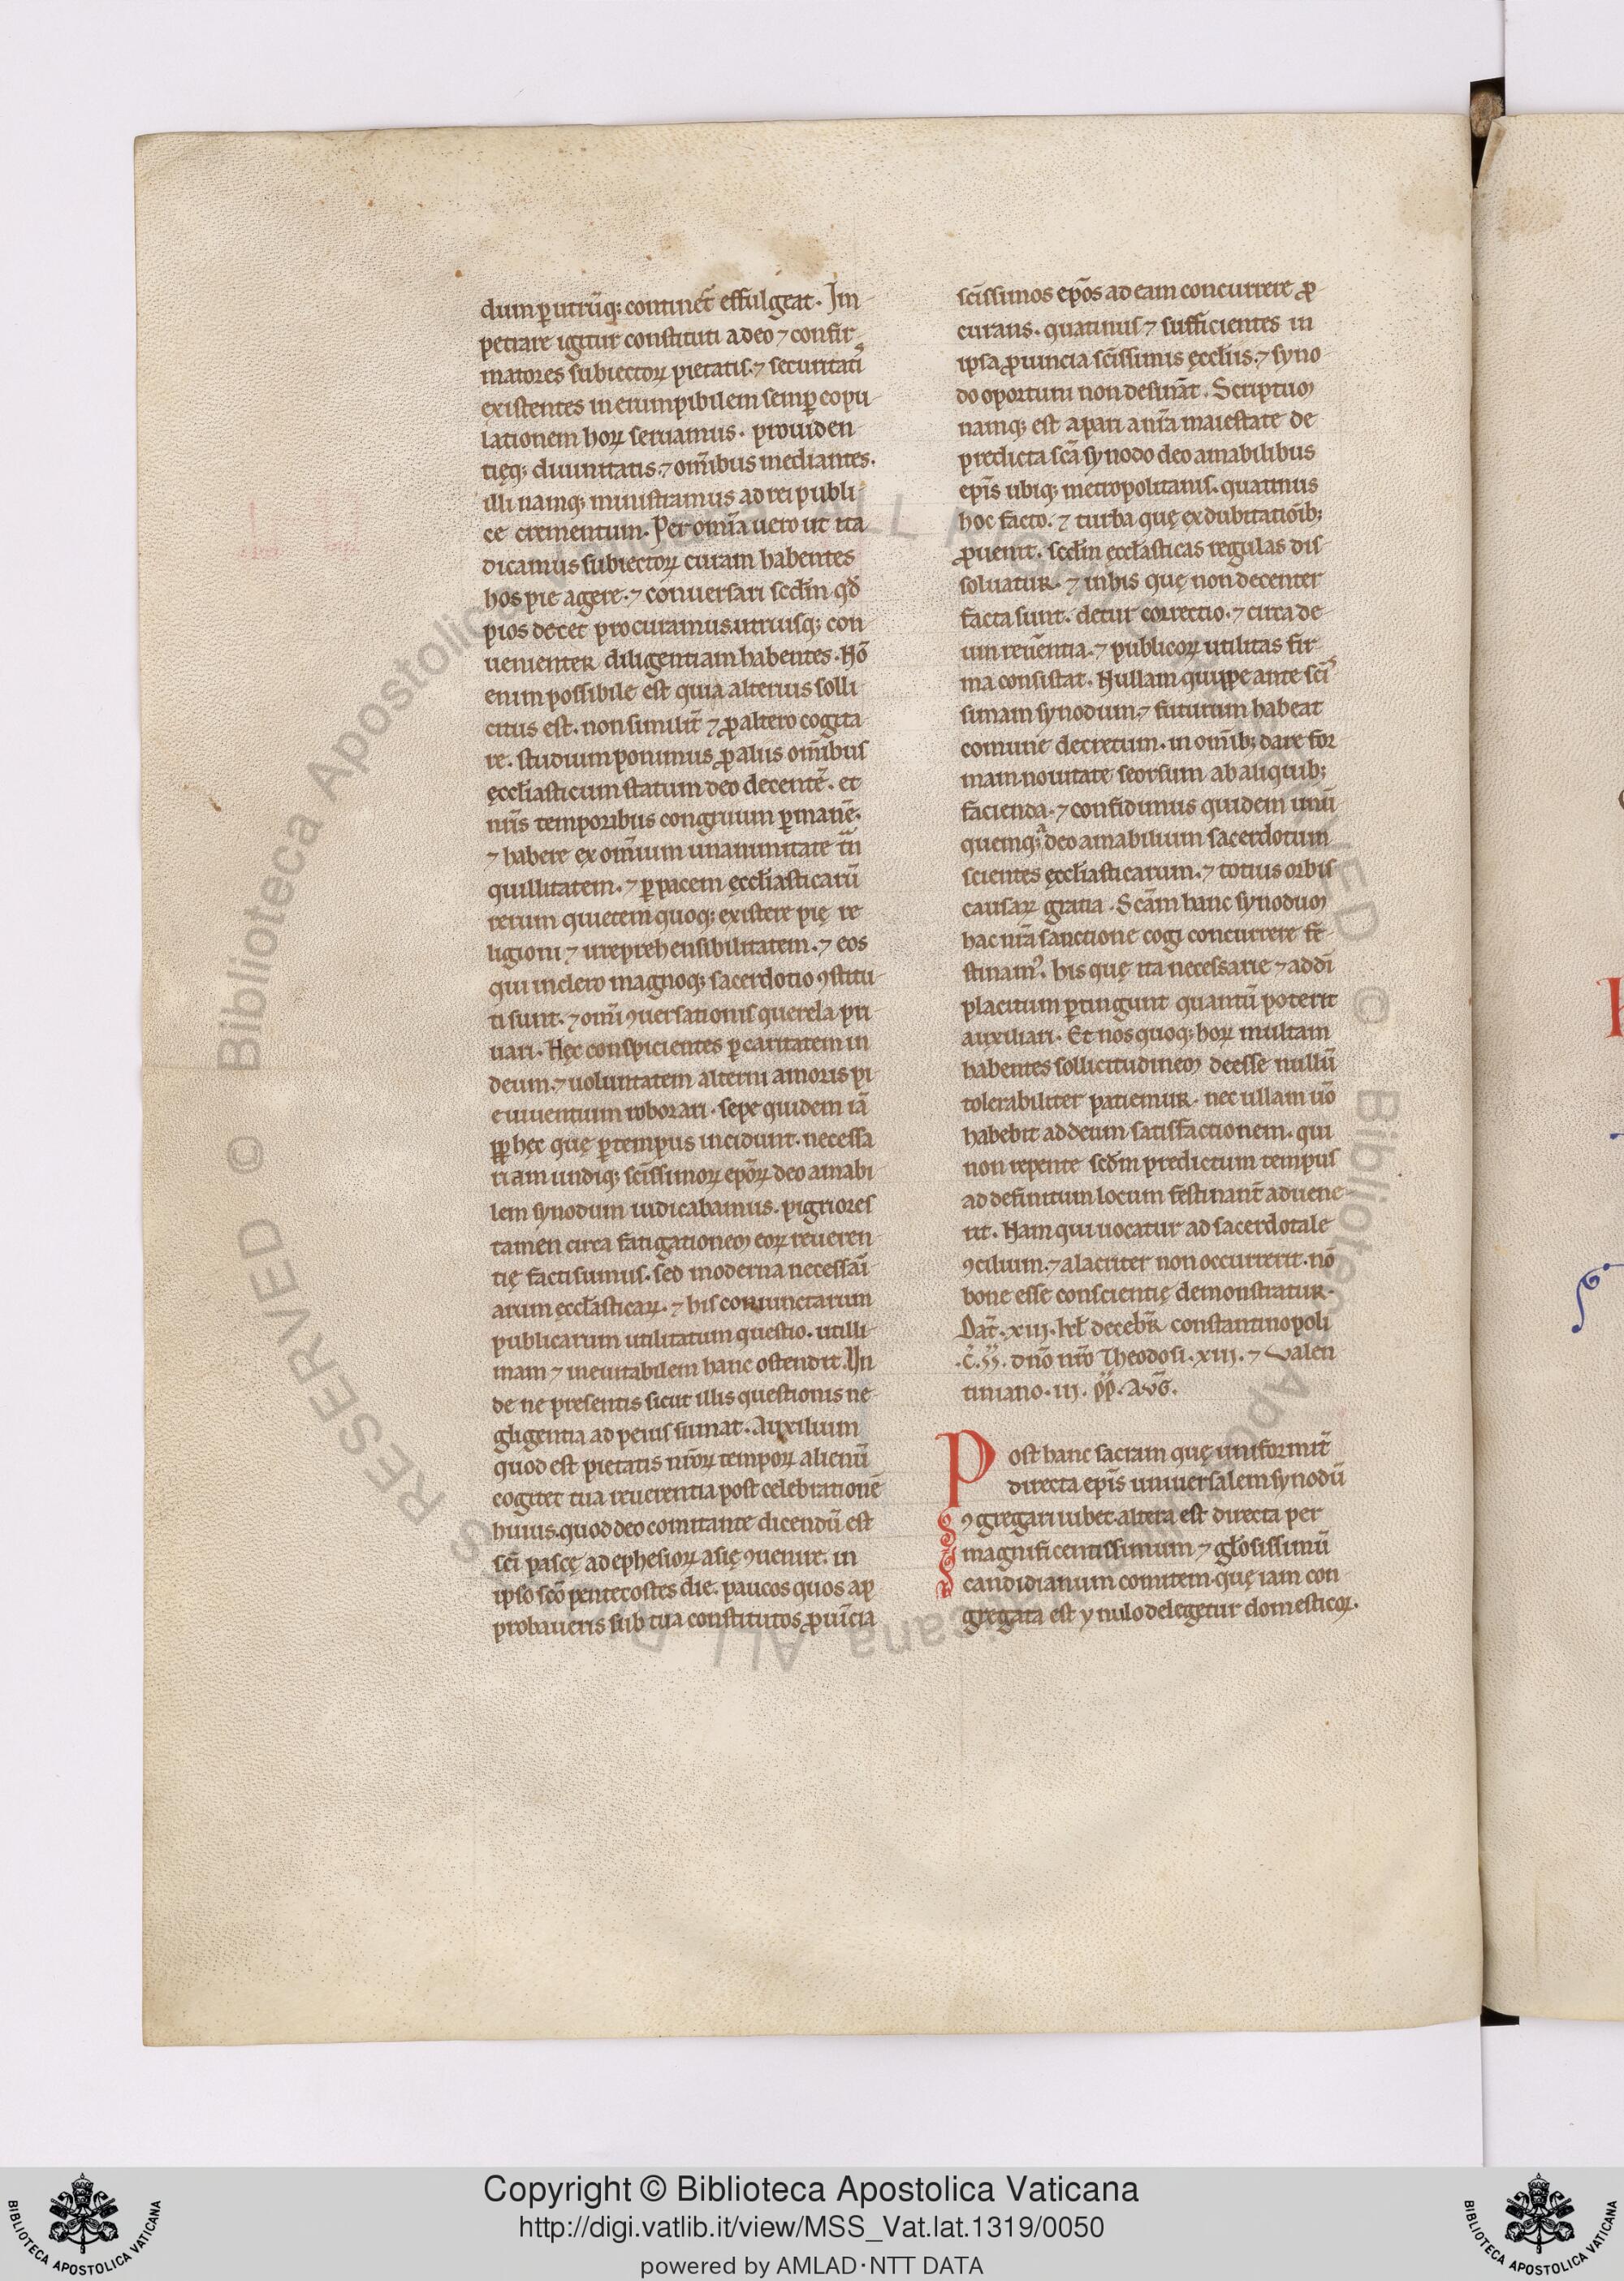 dum p utrūq; continet̄ effulgeat. Im
petrare igitur constituti a deo ⁊ confir
matores subiectoꝝ pietatis.⁊ securitatis
existentes in erumpibilem semp̄ copu
lationem hoꝝ seruamus. prouiden
tięq; diuinitatis.⁊ om̄ibus mediantes.
illi namq; ministramus ad rei publi
ce crementum. Per om̄ia uero ut ita
dicamus subiectoꝝ curam habentes
hos pie agere.⁊ conuersari scd̄m qd̄
pios decet procuramus.utriusq; con
uenienter diligentiam habentes. Nō
enim possibile est quia alterius solli
citus est. non similit̄ ⁊ ꝓ altero cogita
re. studium ponimus ꝓ aliis om̄ibus
ęccl̄iasticum statum deo decentē. et
nr̄is temporibus congruum ꝑmanē.
⁊ habere ex om̄ium unanimitate tn̄
quillitatem.⁊ ꝑ pacem ęccl̄iasticarū
rerum quietem quoq; existere pię re
ligioni ⁊ irreprehensibilitatem.⁊ eos
qui in clero magnoq; sacerdotio ꝯstitu
ti sunt.⁊ om̄i ꝯuersationis querela pri
uari. Hęc conspicientes ꝑ caritatem in
deum.⁊ uoluntatem alterni amoris pi
e uiuentium roborari. sepe quidem iā
ꝓpt hęc quę ꝑ tempus incidunt. necessa
riam undiq; sc̄issimoꝝ ep̄oꝝ deo amabi
lem synodum iudicabamus. pigriores
tamen circa fatigationem eoꝝ reueren
tię facti sumus. sed moderna necessaī
arum ęccl̄iasticaꝝ.⁊ his coniunctarum
publicarum utilitatum questio. utilli
mam ⁊ ineuitabilem hanc ostendit. Un
de ne presentis sicut illis questionis ne
gligentia ad peius sumat. Auxilium
quod est pietatis nr̄oꝝ tempoꝝ alienū
cogitet tua reuerentia post celebrationē
huius.quod deo comitante dicendū est
sc̄i pascę ad ephesioꝝ asię ꝯuenire. in
ipso sc̄o pentecostes die. paucos quos ap
probaueris sub tua constitutos ꝓuīcia
sc̄issimos ep̄os ad eam concurrere ꝓ
curans. quatinus ⁊ sufficientes in
ipsa ꝓuincia sc̄issimis ęccl̄iis.⁊ syno
do oportuni non desinā̄t. Scriptum
namq; est a pari a nr̄a maiestate de
predicta sc̄a synodo deo amabilibus
ep̄is ubiq; metropolitanis. quatinus
hoc facto. ⁊ turba quę ex dubitatiōib;
ꝓuenit. scd̄m ęccl̄iasticas regulas dis
soluatur. ⁊ in his quę non decenter
facta sunt. detur correctio.⁊ circa de
um reuēentia.⁊ publicoꝝ utilitas fir
ma consistat. Nullam quippe ante sc̄is
simam synodum.⁊ futurum habeat
comune decretum. in om̄ib; dare for
mam nouitate seorsum ab aliquib;
facienda.⁊ confidimus quidem unū
quemq; a deo amabilium sacerdotum
scientes ęccl̄iasticarum.⁊ totius orbis
causaꝝ gratia. Sc̄am hanc synodum
hac nr̄a sanctione cogi concurrere fe
stinam̄. his quę ita necessarie ⁊ ad dī
placitum ꝑtingunt quantū poterit
auxiliari. Et nos quoq; hoꝝ multam
habentes sollicitudinem deesse nullū
tolerabiliter patiemur. nec ullam ūo
habebit ad deum satisfactionem. qui
non repente scd̄m predictum tempus
ad definitum locum festinant̄ aduene
rit. Nam qui uocatur ad sacerdotale
ꝯcilium.⁊ alacriter non occurrerit. nō
bone esse conscientię demonstratur.
Dat̄.xiii.kl̄ decēbr̄ constantinopoli
dn̄o nr̄o Theodosi.xiii.⁊ Valen
tiniano.iii. ꝑp̄. Aug̅.
Post hanc sacram quę uniformit̄
directa ep̄is uniuersalem synodū
ꝯgregari iubet. altera est directa per
magnificentissimum ⁊ gl̄osissimū
candidianum comitem. quę iam con
gregata est ynulo delegetur domesticoꝝ.
© Biblioteca Apostolica Vaticana ALL RIGHTS RESERVED © Biblioteca Apostolica Vaticana ALL RIGHTS RESERVED
Copyright © Biblioteca Apostolica Vaticana
http://digi.vatlib.it/view/MSS_Vat.lat.1319/0050
powered by AMLAD·NTT DATA
BIBLIOTECA APOSTOLICA VATICANA
BIBLIOTECA APOSTOLICA VATICANA